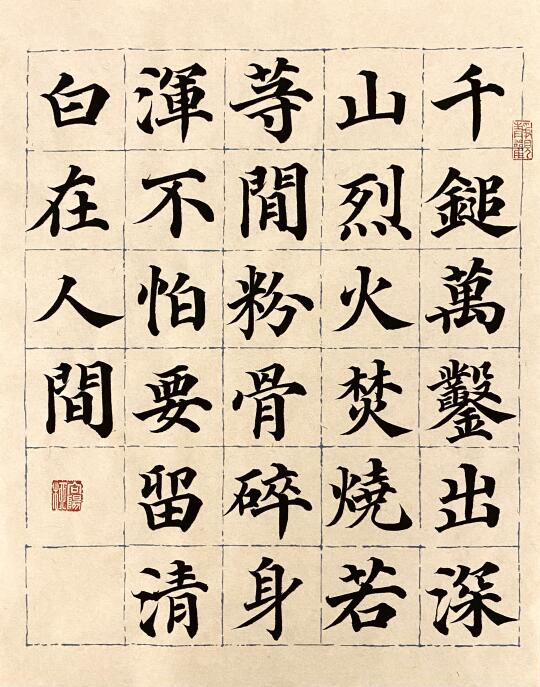 千鎚萬鑿出深
山烈火焚燒若
等閒粉骨碎身
渾不怕要留清
白在人間